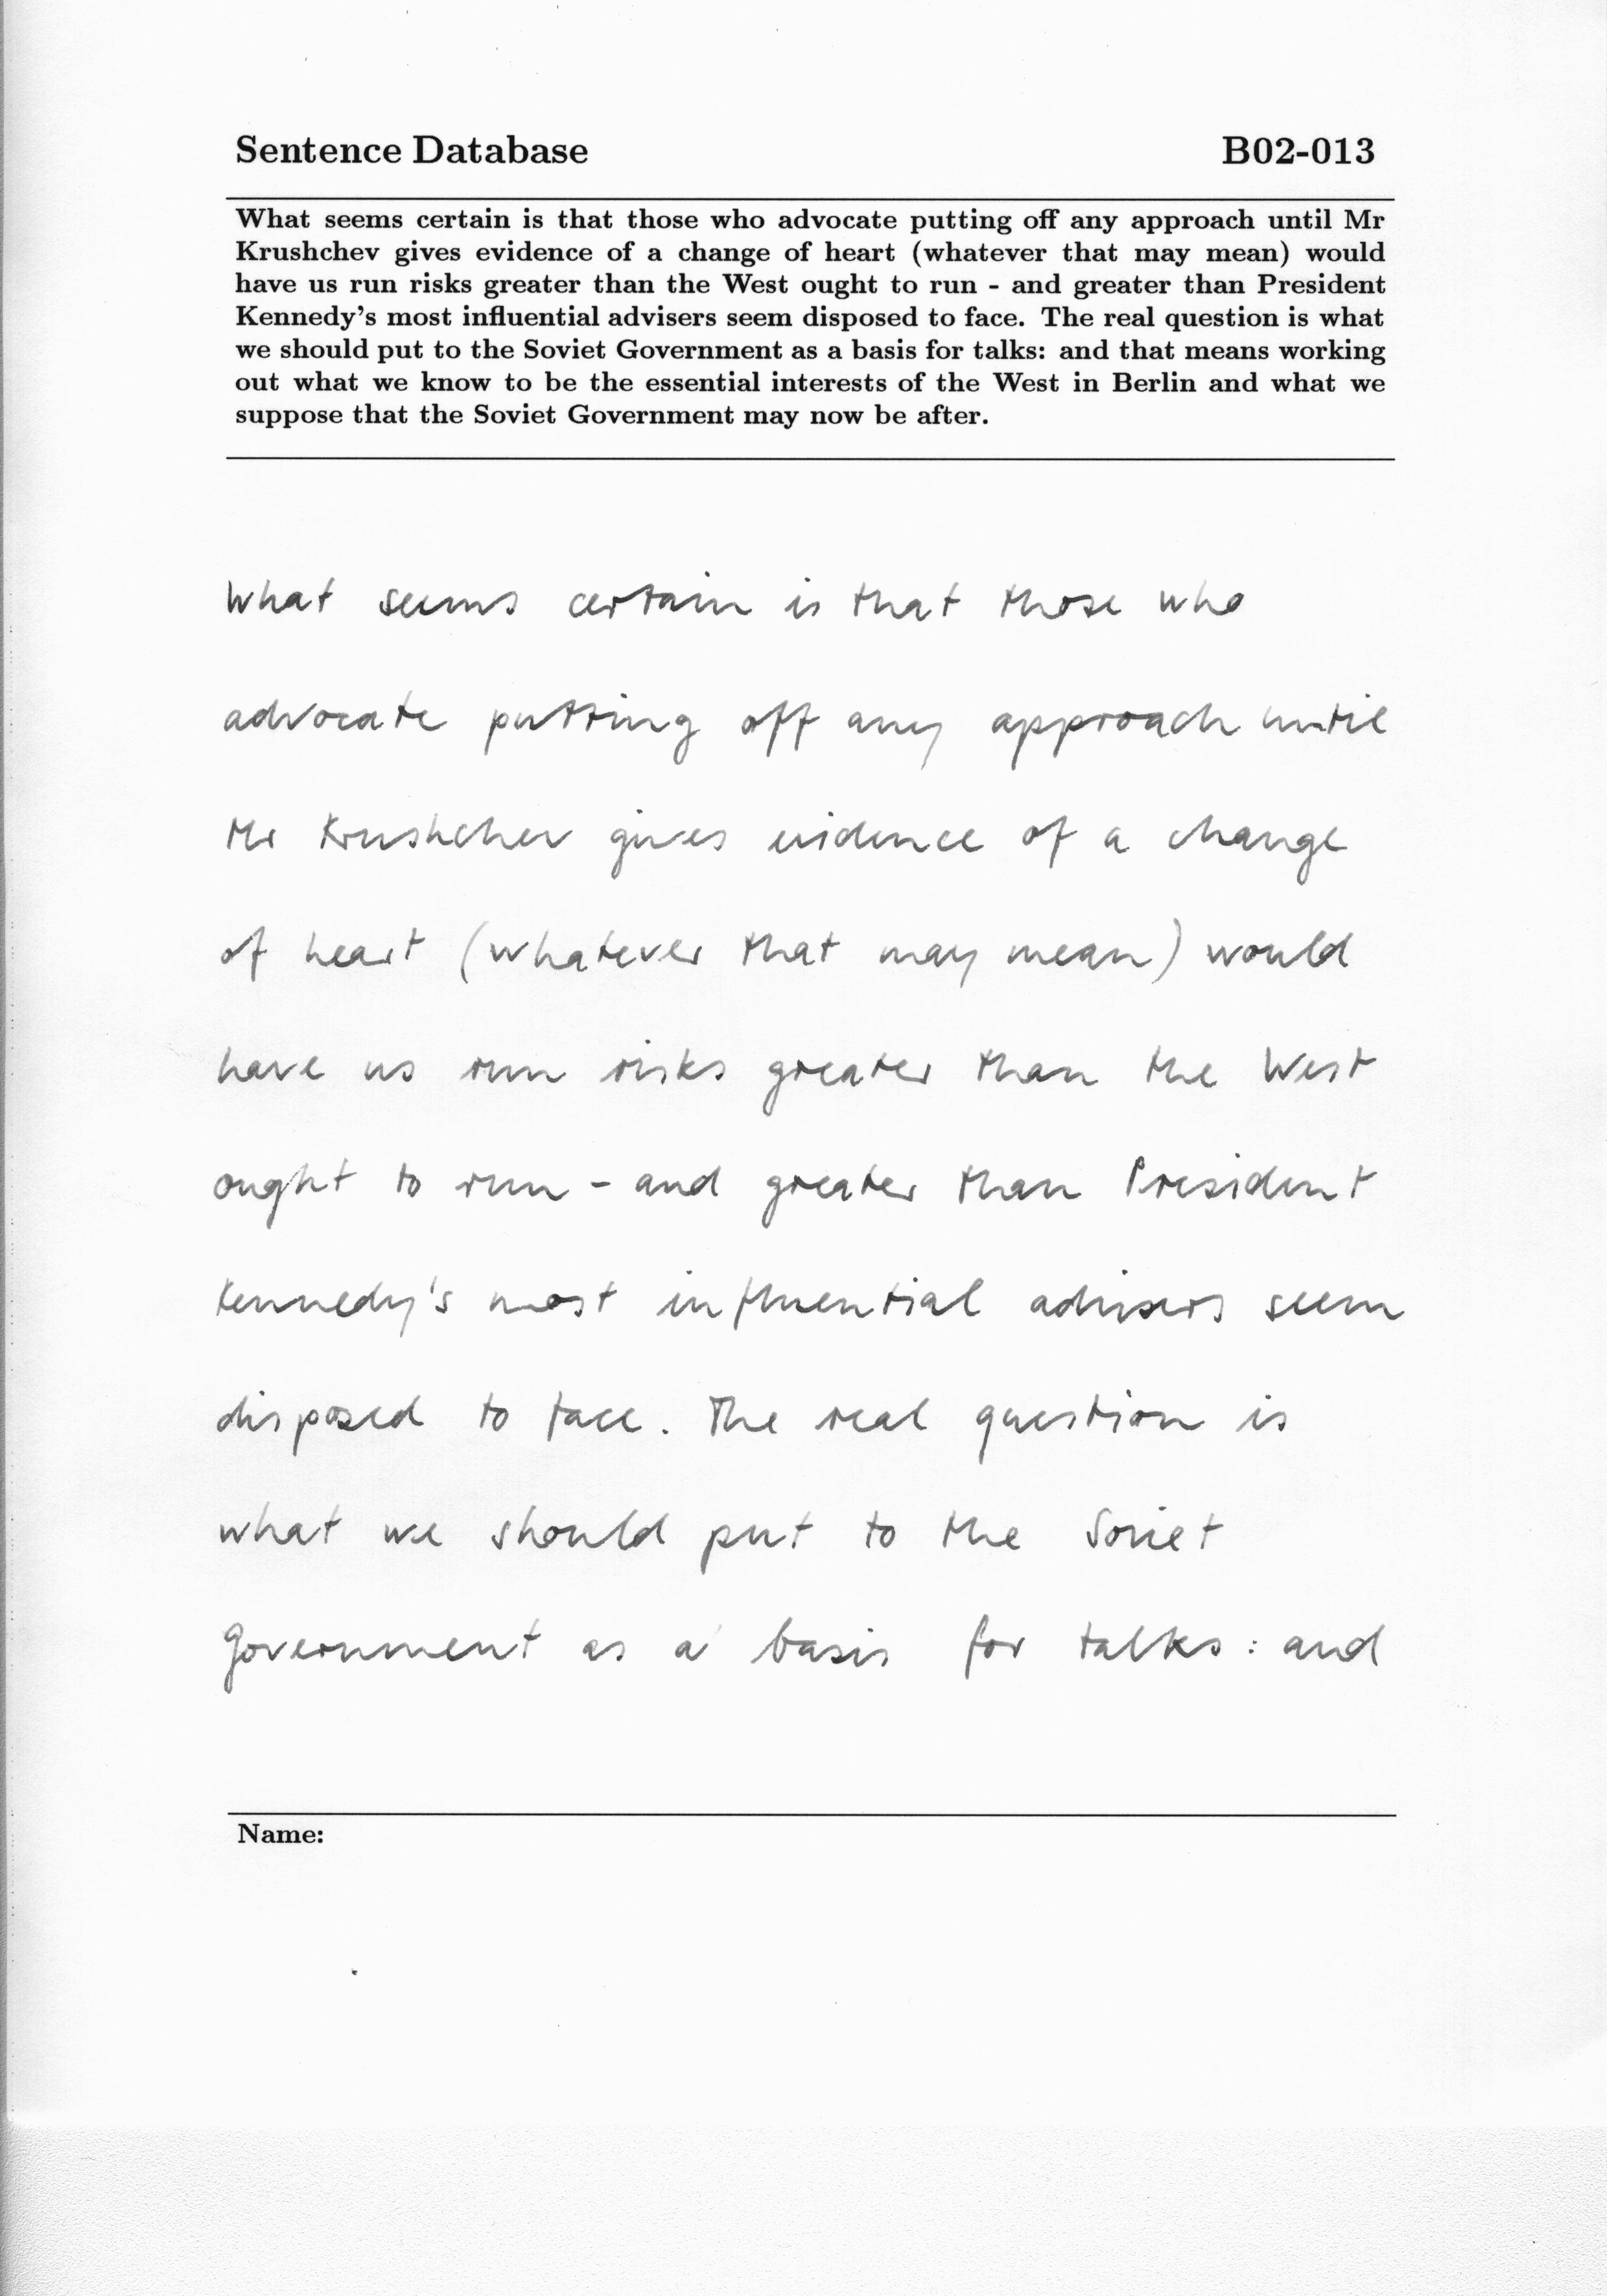 Sentence Database B02-013
What seems certain is that those who advocate putting off any approach until Mr
Krushchev gives evidence of a change of heart (whatever that may mean) would
have us run risks greater than the West ought to run - and greater than President
Kennedy's most influential advisers seem disposed to face. The real question is what
we should put to the Soviet Government as a basis for talks: and that means working
out what we know to be the essential interests of the West in Berlin and what we
suppose that the Soviet Government may now be after.
What seems certain is that those who
advocate putting off any approach until
Mr Krushchev gives evidence of a change
of heart (whatever that may mean) would
have us run risks greater than the West
ought to run - and greater than President
Kennedy's most influential advisers seem
disposed to face. The real question is
what we should put to the Soviet
Government as a basis for talks: and
Name: